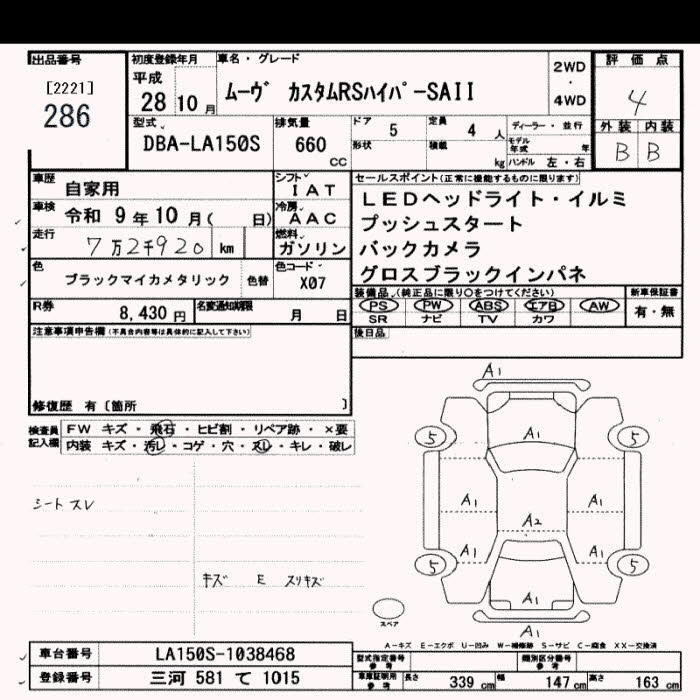 出品番号
[2221]
286
初度登録年月
平成
28 10 月
車名・グレード
ムーヴ カスタムRSハイパーSAII
2WD
・
4WD
評価点
4
外装 内装
B B
型式
DBA-LA150S
排気量
660
CC
ドア 5
形状
定員 4 人
積載 kg
ディーラー・並行
モデル年式 年
ハンドル 左・右
車歴 自家用
シフト IAT
車検 令和 9年10月( 日)
冷房 AAC
走行 7万2千920 km
燃料 ガソリン
色 ブラックマイカメタリック 色替
色コード X07
R券 8,430 円
名変通知期限 月 日
セールスポイント(正常に機能するものに限ります)
LEDヘッドライト・イルミ
プッシュスタート
バックカメラ
グロスブラックインパネ
装備品(純正品に限り○をつけてください)
PS PW ABS エアB AW
SR ナビ TV カワ
新車保証書
有・無
後日品
注意事項申告欄(不具合内容等は具体的に記入して下さい)
修復歴 有〔箇所 〕
検査員記入欄
FW キズ・飛石・ヒビ割・リペア跡・×要
内装 キズ・汚レ・コゲ・穴・スレ・キレ・破レ
シートスレ
キズ E スリキズ
A1
5 5
A1
A1 A1
A2
A1 A1
5 5
A1
A1
スペア
A-キズ E-エクボ U-凹み W-補修跡 S-サビ C-腐食 XX-交換済
車台番号 LA150S-1038468
登録番号 三河 581 て 1015
型式指定番号 参考
類別区分番号 参考
車庫証明用 参考
長さ 339 cm 幅 147 cm 高さ 163 cm